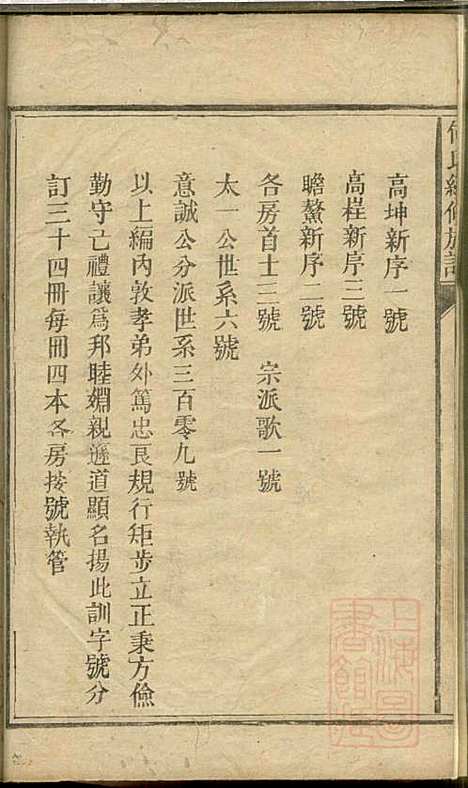 氏續修族譜
高坤新序一號
高桯新序三號
瞻鰲新序二號
各房首士三號　宗派歌一號
太一公世系六號
意誠公分派世系三百零九號
以上編內敦孝弟外篤忠良規行矩步立正秉方儉
勤守亡禮讓爲邦睦婣親遜道顯名揚此訓字號分
訂三十四冊每冊四本各房按號執管
上海圖書館藏